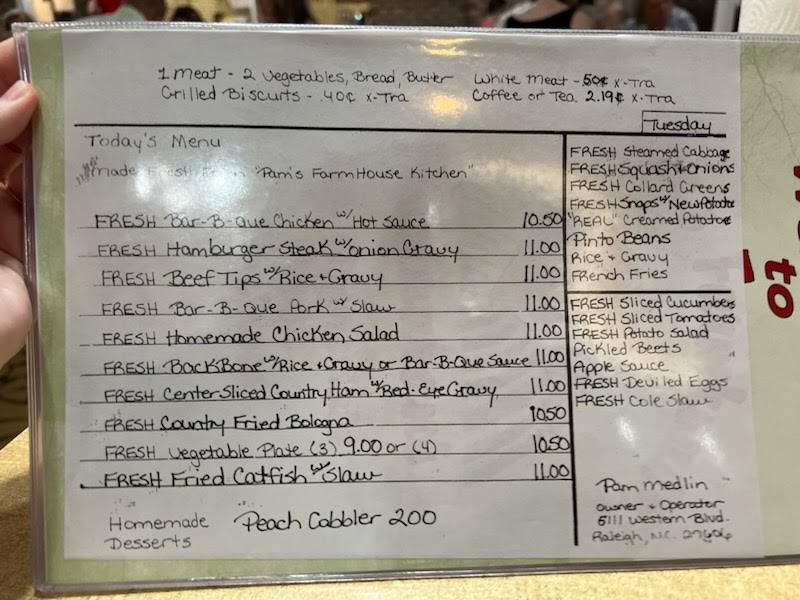 1 meat - 2 vegetables, Bread, Butter
Grilled Biscuits - .40¢ x-Tra
White meat - .50¢ x-Tra
Coffee or Tea 2.19¢ x-Tra
Tuesday
Today's Menu
made Fresh From "Pam's FarmHouse Kitchen"
FRESH Bar-B-Que Chicken w/ Hot Sauce 10.50
FRESH Hamburger Steak w/ onion Gravy 11.00
FRESH Beef Tips w/ Rice + Gravy 11.00
FRESH Bar-B-Que Pork w/ Slaw 11.00
FRESH Homemade Chicken Salad 11.00
FRESH BackBone w/ Rice + Gravy or Bar-B-Que Sauce 11.00
FRESH Center Sliced Country Ham w/ Red-Eye Gravy 11.00
FRESH Country Fried Bologna 10.50
FRESH Vegetable Plate (3) 9.00 or (4) 10.50
FRESH Fried Catfish w/ Slaw 11.00
Homemade Desserts
Peach Cobbler 200
FRESH Steamed Cabbage
FRESH Squash + Onions
FRESH Collard Greens
FRESH Snaps w/ New Potatoe
"REAL" Creamed Potatoe
Pinto Beans
Rice + Gravy
FRench Fries
FRESH Sliced Cucumbers
FRESH Sliced Tomatoes
FRESH Potato Salad
Pickled Beets
Apple Sauce
FRESH Deviled Eggs
FRESH Cole Slaw
Pam Medlin
owner + Operator
5111 Western Blvd.
Raleigh, NC. 27606
to